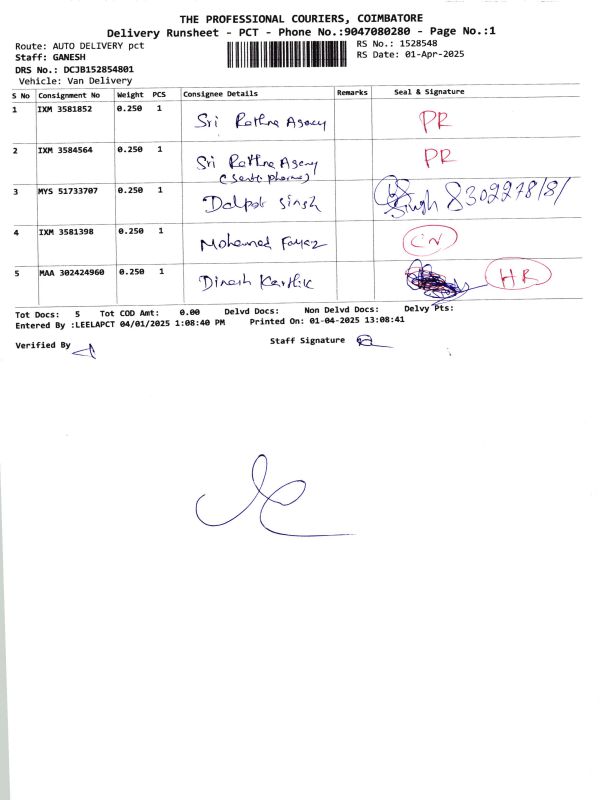 THE PROFESSIONAL COURIERS, COIMBATORE
Delivery Runsheet - PCT - Phone No.:9047080280 - Page No.:1
Route: AUTO DELIVERY pct
RS No.: 1528548
Staff: GANESH
RS Date: 01-Apr-2025
DRS No.: DCJB152854801
Vehicle: Van Delivery
S No Consignment No Weight PCS Consignee Details Remarks Seal & Signature
1 IXM 3581852 0.250 1 Sri Rathna Agency PR
2 IXM 3584564 0.250 1 Sri Rathna Agency PR
3 MYS 51733707 0.250 1 Dalpat Singh Singh
4 IXM 3581398 0.250 1 Mohamed Fayaz CN
5 MAA 302424960 0.250 1 Dinesh Karthik HR
Tot Docs: 5 Tot COD Amt: 0.00 Delvd Docs: Non Delvd Docs: Delvy Pts:
Entered By :LEELAPCT 04/01/2025 1:08:40 PM Printed On: 01-04-2025 13:08:41
Verified By
Staff Signature